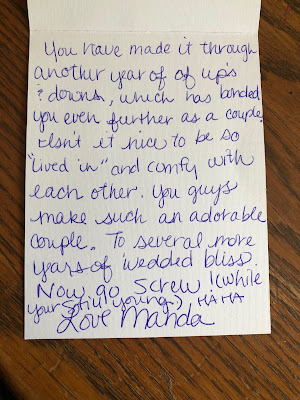 You have made it through
another year of of up's
& downs, which has bonded
you even further as a couple.
Isn't it nice to be so
"lived in" and comfy with
each other. You guys
make such an adorable
couple. To several more
years of wedded bliss.
Now go Screw! (While
your still young.) HA HA
Love Manda